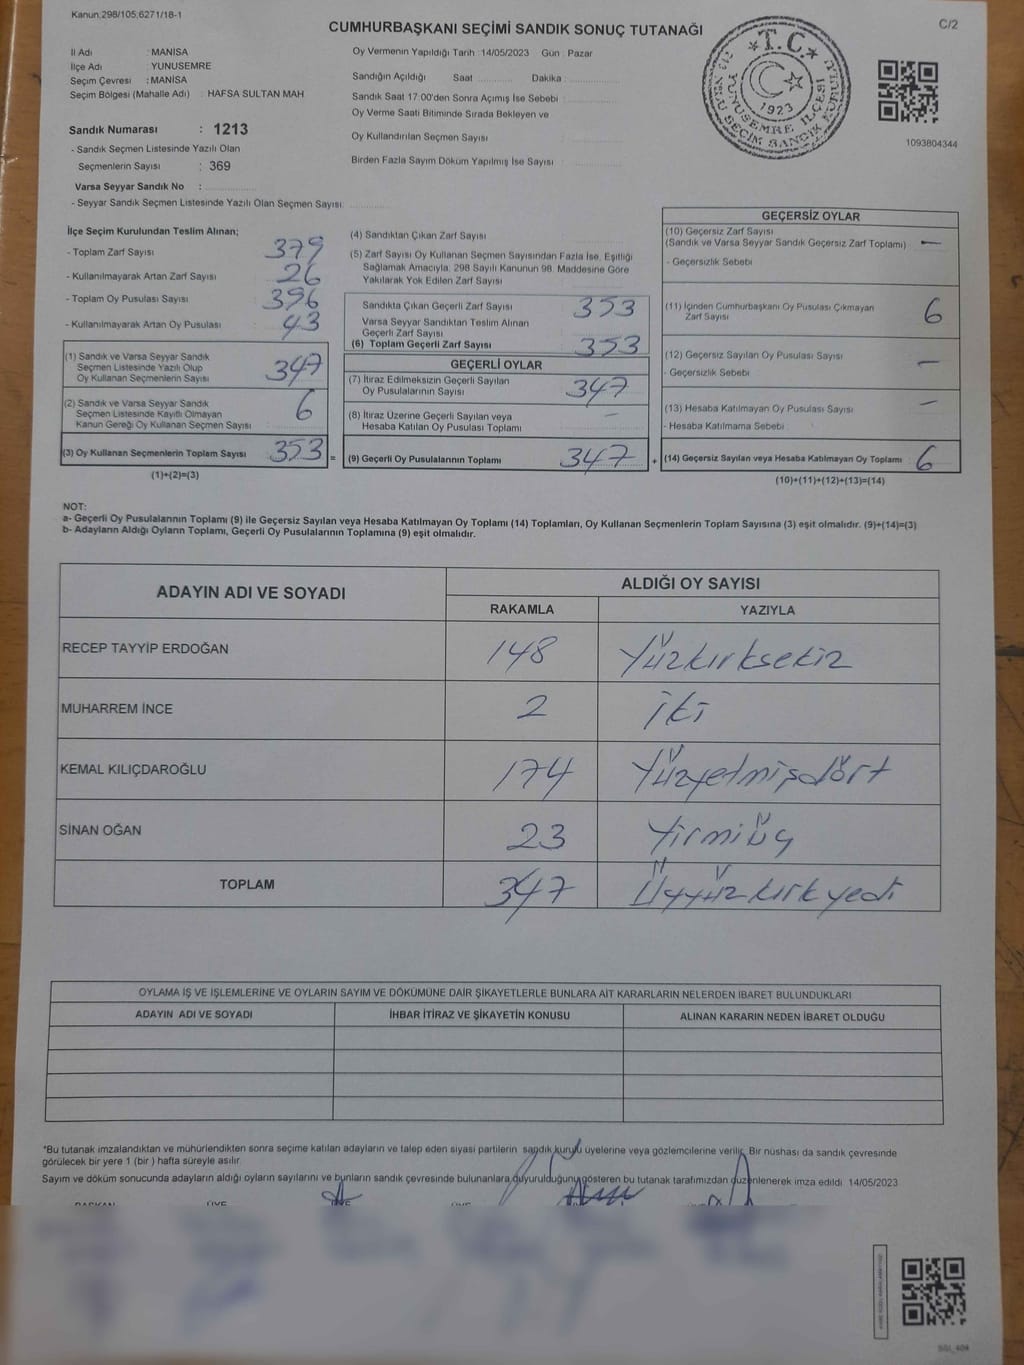 Kanun:298/105;6271/18-1
C/2
CUMHURBAŞKANI SEÇİMİ SANDIK SONUÇ TUTANAĞI
İl Adı : MANİSA
İlçe Adı : YUNUSEMRE
Seçim Çevresi : MANİSA
Seçim Bölgesi (Mahalle Adı) : HAFSA SULTAN MAH
Sandık Numarası : 1213
- Sandık Seçmen Listesinde Yazılı Olan
Seçmenlerin Sayısı : 369
Varsa Seyyar Sandık No :
- Seyyar Sandık Seçmen Listesinde Yazılı Olan Seçmen Sayısı:
Oy Vermenin Yapıldığı Tarih :14/05/2023 Gün : Pazar
Sandığın Açıldığı Saat Dakika :
Sandık Saat 17:00'den Sonra Açımış İse Sebebi :
Oy Verme Saati Bitiminde Sırada Bekleyen ve
Oy Kullandırılan Seçmen Sayısı :
Birden Fazla Sayım Döküm Yapılmış İse Sayısı :
T.C.
1923
YUNUSEMRE İLÇESİ
1093804344
İlçe Seçim Kurulundan Teslim Alınan;
- Toplam Zarf Sayısı 379
- Kullanılmayarak Artan Zarf Sayısı 26
- Toplam Oy Pusulası Sayısı 396
- Kullanılmayarak Artan Oy Pusulası 43
(1) Sandık ve Varsa Seyyar Sandık
Seçmen Listesinde Yazılı Olup
Oy Kullanan Seçmenlerin Sayısı 347
(2) Sandık ve Varsa Seyyar Sandık
Seçmen Listesinde Kayıtlı Olmayan
Kanun Gereği Oy Kullanan Seçmen Sayısı 6
(3) Oy Kullanan Seçmenlerin Toplam Sayısı 353 =
(1)+(2)=(3)
(4) Sandıktan Çıkan Zarf Sayısı
(5) Zarf Sayısı Oy Kullanan Seçmen Sayısından Fazla İse, Eşitliği
Sağlamak Amacıyla, 298 Sayılı Kanunun 98. Maddesine Göre
Yakılarak Yok Edilen Zarf Sayısı
Sandıkta Çıkan Geçerli Zarf Sayısı 353
Varsa Seyyar Sandıktan Teslim Alınan
Geçerli Zarf Sayısı
(6) Toplam Geçerli Zarf Sayısı 353
GEÇERLİ OYLAR
(7) İtiraz Edilmeksizin Geçerli Sayılan
Oy Pusulalarının Sayısı 347
(8) İtiraz Üzerine Geçerli Sayılan veya
Hesaba Katılan Oy Pusulası Toplamı –
(9) Geçerli Oy Pusulalarının Toplamı 347 +
GEÇERSİZ OYLAR
(10) Geçersiz Zarf Sayısı
(Sandık ve Varsa Seyyar Sandık Geçersiz Zarf Toplamı) –
- Geçersizlik Sebebi
(11) İçinden Cumhurbaşkanı Oy Pusulası Çıkmayan
Zarf Sayısı 6
(12) Geçersiz Sayılan Oy Pusulası Sayısı –
- Geçersizlik Sebebi
(13) Hesaba Katılmayan Oy Pusulası Sayısı –
- Hesaba Katılmama Sebebi
(14) Geçersiz Sayılan veya Hesaba Katılmayan Oy Toplamı 6
(10)+(11)+(12)+(13)=(14)
NOT:
a- Geçerli Oy Pusulalarının Toplamı (9) ile Geçersiz Sayılan veya Hesaba Katılmayan Oy Toplamı (14) Toplamları, Oy Kullanan Seçmenlerin Toplam Sayısına (3) eşit olmalıdır. (9)+(14)=(3)
b- Adayların Aldığı Oyların Toplamı, Geçerli Oy Pusulalarının Toplamına (9) eşit olmalıdır.
ADAYIN ADI VE SOYADI ALDIĞI OY SAYISI
RAKAMLA YAZIYLA
RECEP TAYYİP ERDOĞAN 148 Yüzkırksekiz
MUHARREM İNCE 2 iki
KEMAL KILIÇDAROĞLU 174 Yüzyetmişdört
SİNAN OĞAN 23 Yirmiüç
TOPLAM 347 Üçyüzkırkyedi
OYLAMA İŞ VE İŞLEMLERİNE VE OYLARIN SAYIM VE DÖKÜMÜNE DAİR ŞİKAYETLERLE BUNLARA AİT KARARLARIN NELERDEN İBARET BULUNDUKLARI
ADAYIN ADI VE SOYADI İHBAR İTİRAZ VE ŞİKAYETİN KONUSU ALINAN KARARIN NEDEN İBARET OLDUĞU
*Bu tutanak imzalandıktan ve mühürlendikten sonra seçime katılan adayların ve talep eden siyasi partilerin sandık kurulu üyelerine veya gözlemcilerine verilir. Bir nüshası da sandık çevresinde
görülecek bir yere 1 (bir ) hafta süreyle asılır.
Sayım ve döküm sonucunda adayların aldığı oyların sayılarını ve bunların sandık çevresinde bulunanlara duyurulduğunu gösteren bu tutanak tarafımızdan düzenlenerek imza edildi. 14/05/2023
BAŞKAN ÜYE ÜYE